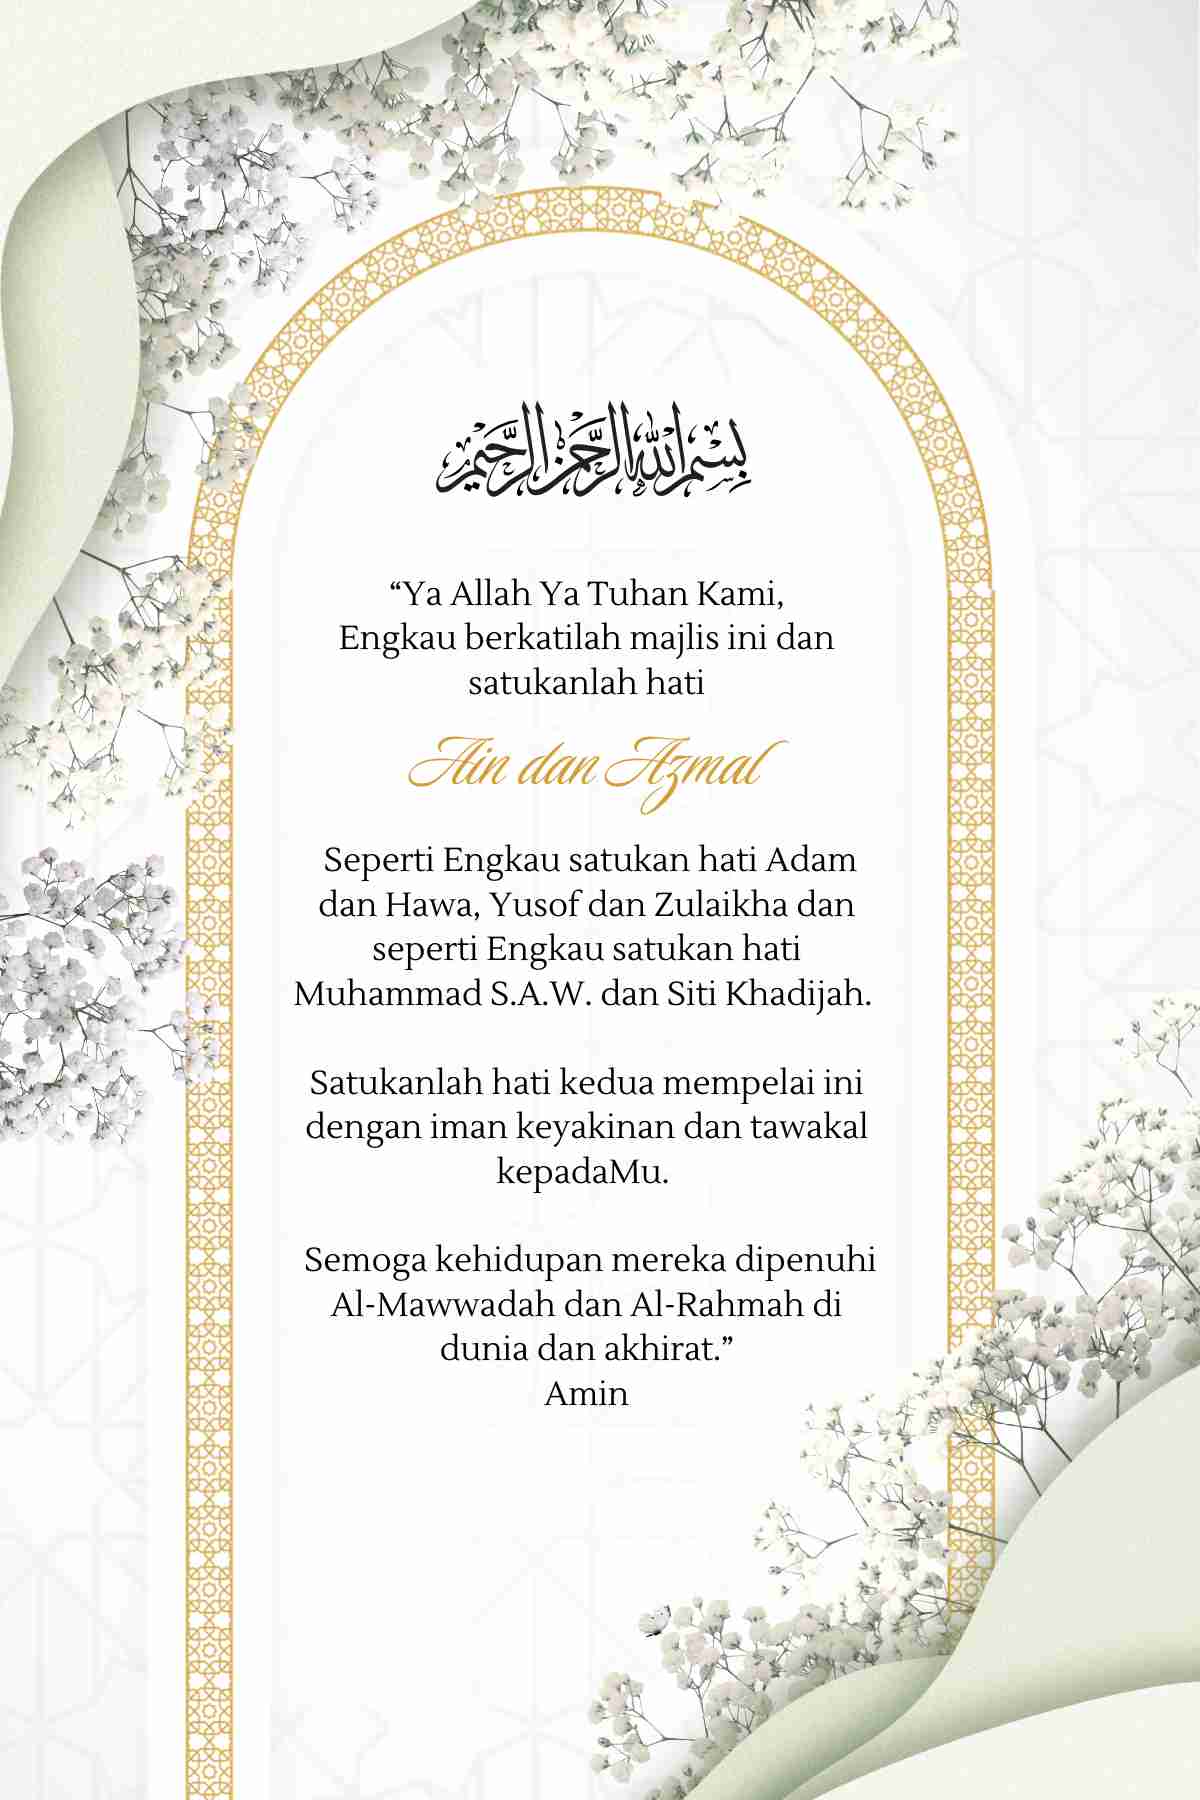 بِسْمِ اللهِ الرَّحْمٰنِ الرَّحِيْمِ
“Ya Allah Ya Tuhan Kami,
Engkau berkatilah majlis ini dan
satukanlah hati
Ain dan Azmal
Seperti Engkau satukan hati Adam
dan Hawa, Yusof dan Zulaikha dan
seperti Engkau satukan hati
Muhammad S.A.W. dan Siti Khadijah.
Satukanlah hati kedua mempelai ini
dengan iman keyakinan dan tawakal
kepadaMu.
Semoga kehidupan mereka dipenuhi
Al-Mawwadah dan Al-Rahmah di
dunia dan akhirat.”
Amin